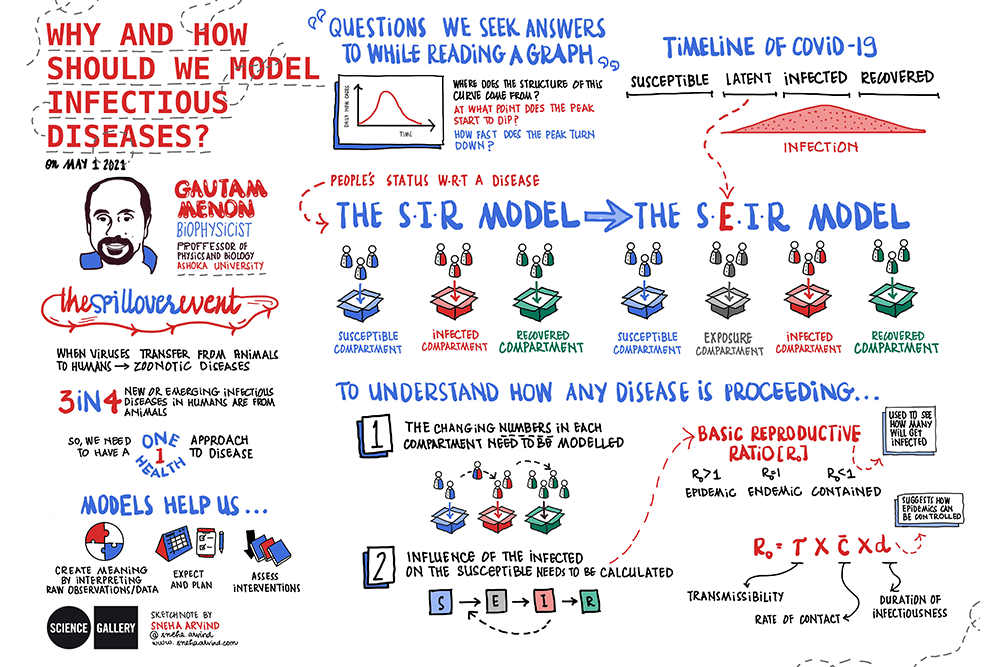 WHY AND HOW
SHOULD WE MODEL
INFECTIOUS
DISEASES?
ON MAY 1 2021
GAUTAM
MENON
BIOPHYSICIST
PROFFESSOR OF
PHYSICS AND BIOLOGY
ASHOKA UNIVERSITY
the spillover event
WHEN VIRUSES TRANSFER FROM ANIMALS
TO HUMANS → ZOONOTIC DISEASES
3 IN 4
NEW OR EMERGING INFECTIOUS
DISEASES IN HUMANS ARE FROM
ANIMALS
SO, WE NEED
TO HAVE A
ONE
1
HEALTH
APPROACH
TO DISEASE
MODELS HELP US...
CREATE MEANING
BY INTERPRETING
RAW OBSERVATIONS/DATA
EXPECT
AND PLAN
ASSESS
INTERVENTIONS
SCIENCE
GALLERY
SKETCHNOTE BY
SNEHA ARVIND
@sneha.arvind
www.snehaarvind.com
QUESTIONS WE SEEK ANSWERS
TO WHILE READING A GRAPH
DAILY NEW CASES
TIME
WHERE DOES THE STRUCTURE OF THIS
CURVE COME FROM?
AT WHAT POINT DOES THE PEAK
START TO DIP?
HOW FAST DOES THE PEAK TURN
DOWN?
TIMELINE OF COVID-19
SUSCEPTIBLE
LATENT
INFECTED
RECOVERED
INFECTION
PEOPLE'S STATUS W.R.T A DISEASE
THE S.I.R MODEL
THE S.E.I.R MODEL
SUSCEPTIBLE
COMPARTMENT
INFECTED
COMPARTMENT
RECOVERED
COMPARTMENT
SUSCEPTIBLE
COMPARTMENT
EXPOSURE
COMPARTMENT
INFECTED
COMPARTMENT
RECOVERED
COMPARTMENT
TO UNDERSTAND HOW ANY DISEASE IS PROCEEDING...
1
THE CHANGING NUMBERS IN EACH
COMPARTMENT NEED TO BE MODELLED
2
INFLUENCE OF THE INFECTED
ON THE SUSCEPTIBLE NEEDS TO BE CALCULATED
S → E → I → R
BASIC REPRODUCTIVE
RATIO [R₀]
USED TO SEE
HOW MANY
WILL GET
INFECTED
R₀>1
EPIDEMIC
R₀=1
ENDEMIC
R₀<1
CONTAINED
SUGGESTS HOW
EPIDEMICS CAN
BE CONTROLLED
R₀ = τ X c̄ X d
TRANSMISSIBILITY
RATE OF CONTACT
DURATION OF
INFECTIOUSNESS